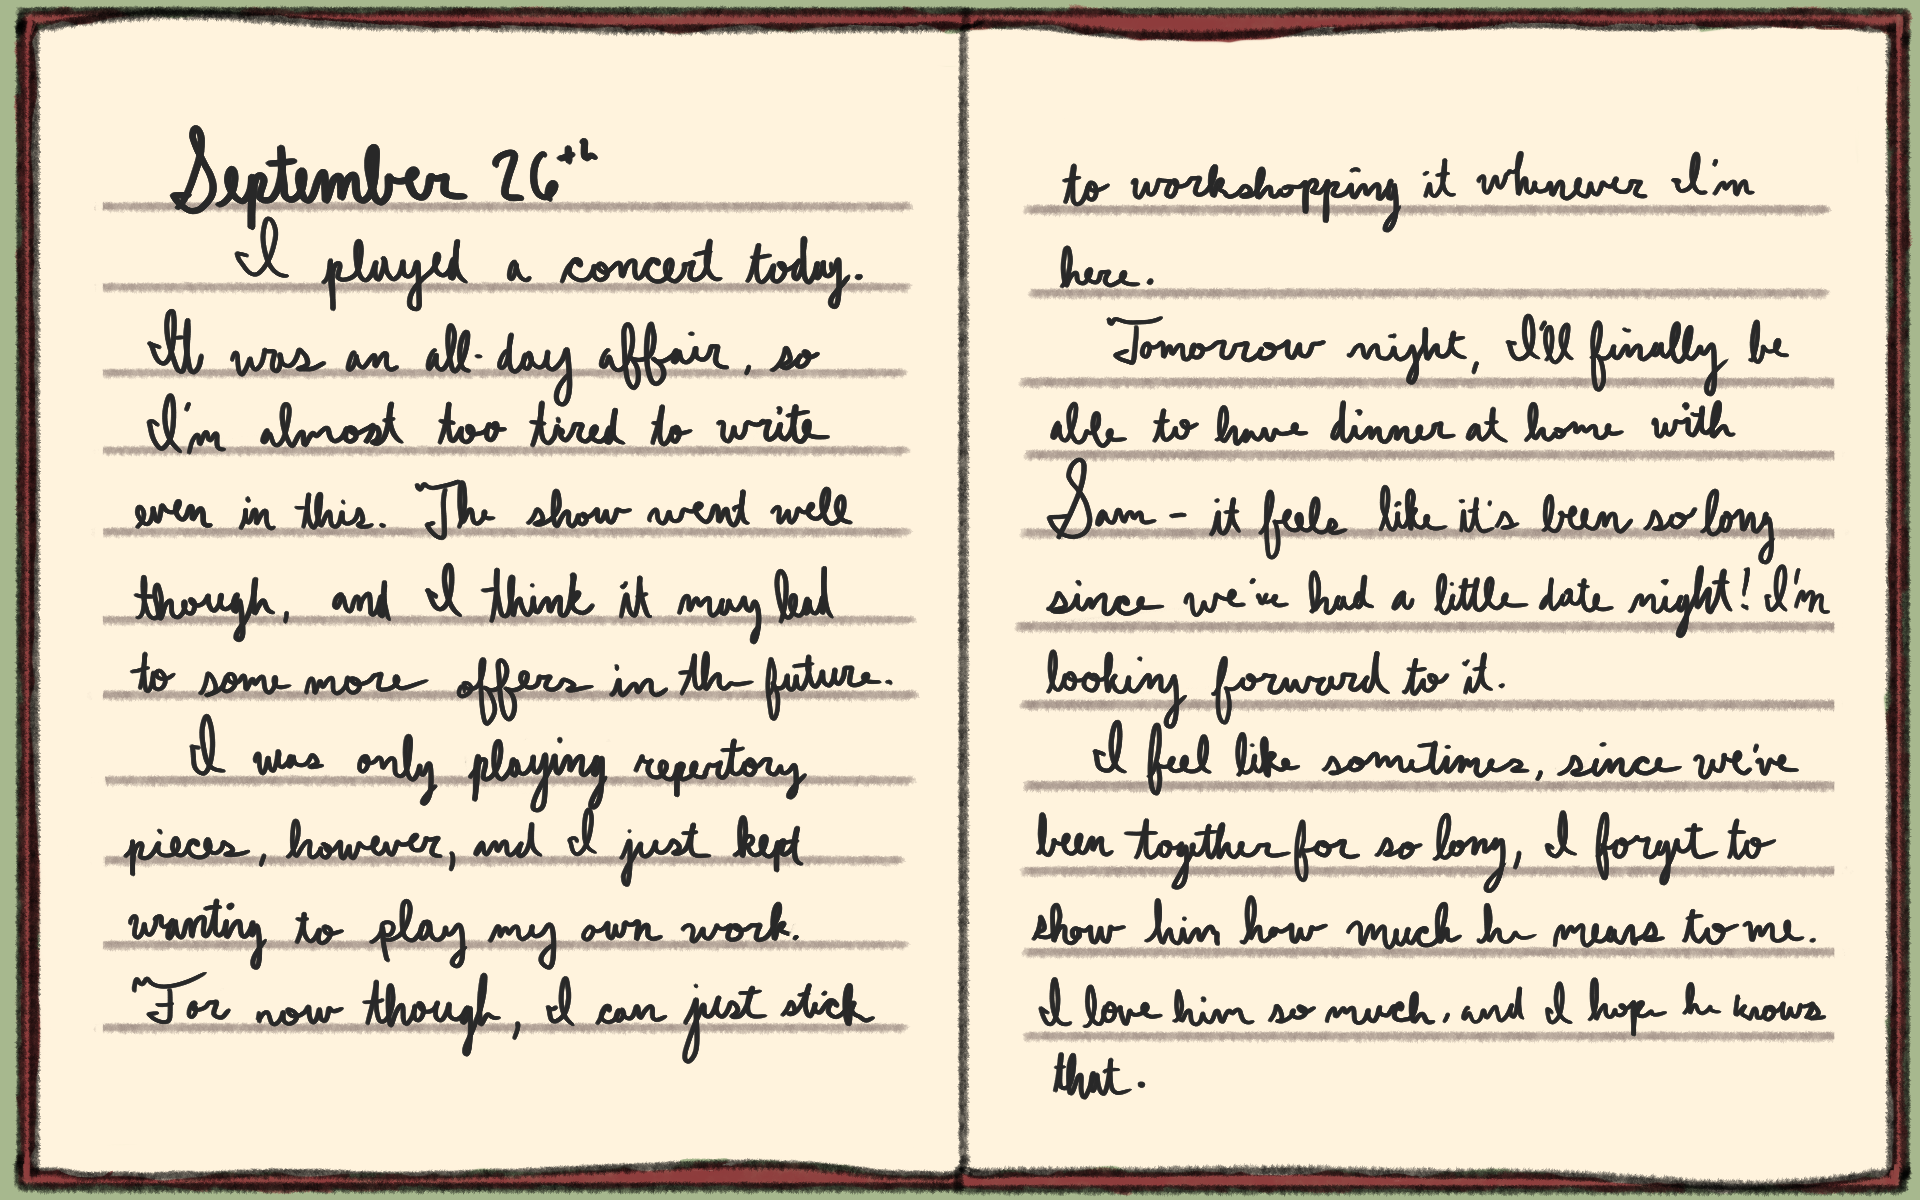 September 26th
I played a concert today.
It was an all-day affair, so
I'm almost too tired to write
even in this. The show went well
though, and I think it may lead
to some more offers in the future.
I was only playing repertory
pieces, however, and I just kept
wanting to play my own work.
For now though, I can just stick
to workshopping it whenever I'm
here.
Tomorrow night, I'll finally be
able to have dinner at home with
Sam - it feels like it's been so long
since we've had a little date night! I'm
looking forward to it.
I feel like sometimes, since we've
been together for so long, I forget to
show him how much he means to me.
I love him so much, and I hope he knows
that.